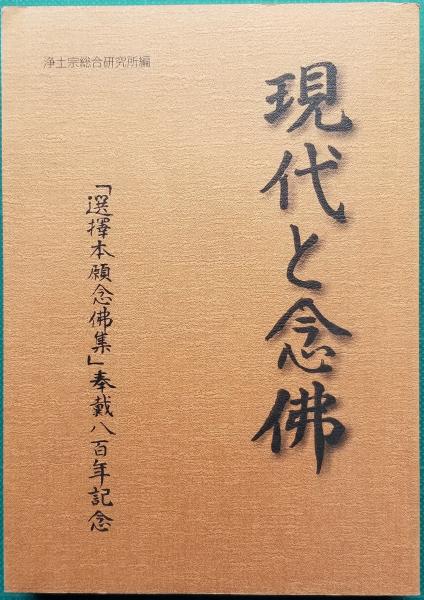 浄土宗総合研究所編
現代と念佛
「選擇本願念佛集」奉戴八百年記念